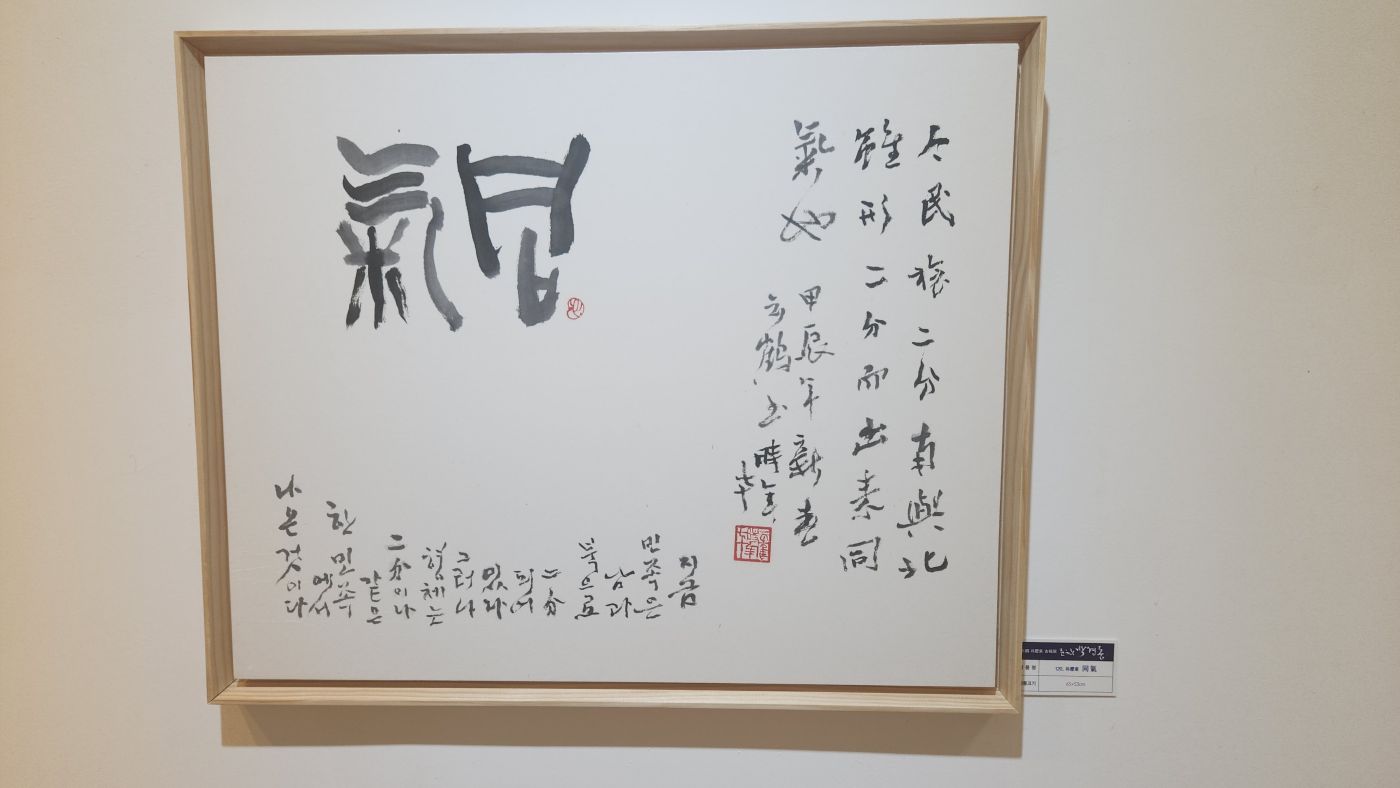 同氣
今民族二分南與北
雖形二分而出素同
氣也
甲辰年新春
云鶴
지금
민족은
남과
북으로
二分
되어
있다
그러나
형체는
二分이나
같은
한 민족
에서
나온 것이다
120.
同氣
65×53cm